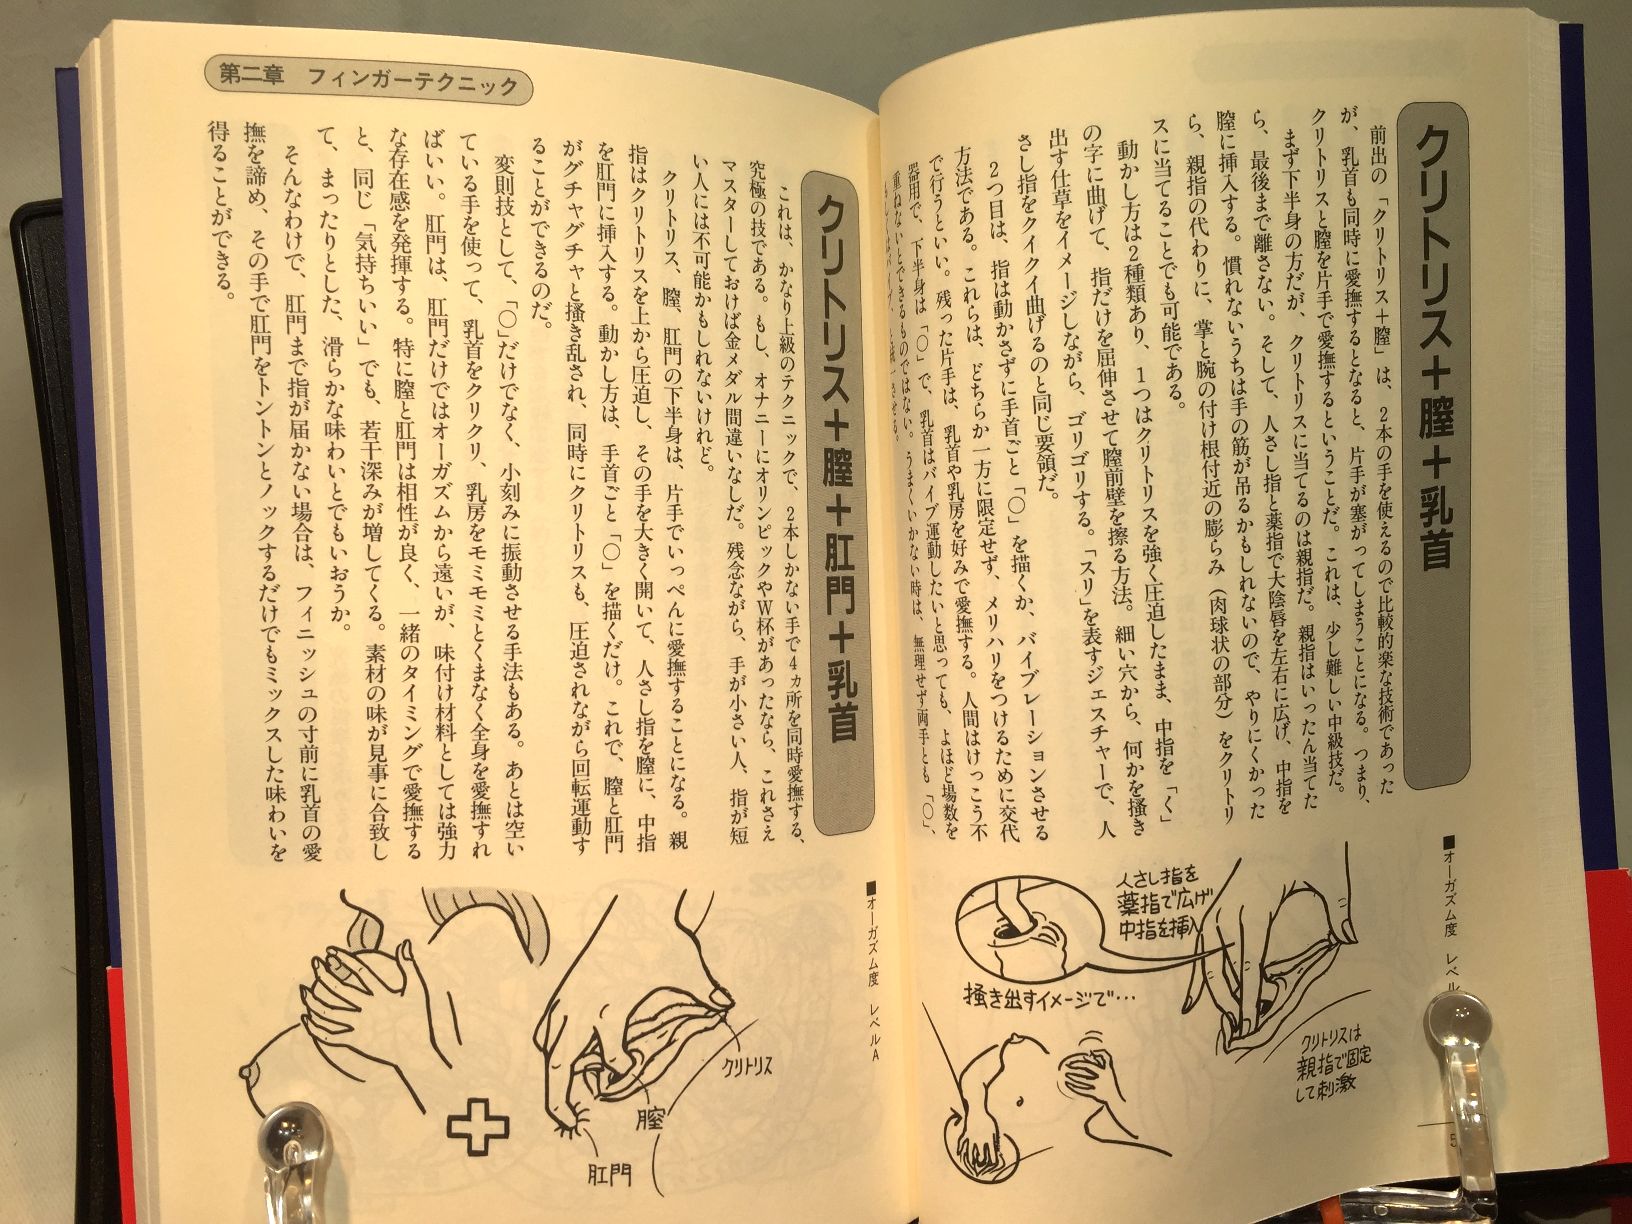 クリトリス+膣+乳首
■オーガズム度　レベル
前出の「クリトリス+膣」は、2本の手を使えるので比較的楽な技術であった
が、乳首も同時に愛撫するとなると、片手が塞がってしまうことになる。つまり、
クリトリスと膣を片手で愛撫するということだ。これは、少し難しい中級技だ。
まず下半身の方だが、クリトリスに当てるのは親指だ。親指はいったん当てた
ら、最後まで離さない。そして、人さし指と薬指で大陰唇を左右に広げ、中指を
膣に挿入する。慣れないうちは手の筋が吊るかもしれないので、やりにくかった
ら、親指の代わりに、掌と腕の付け根付近の膨らみ(肉球状の部分)をクリトリ
スに当てることでも可能である。
動かし方は2種類あり、1つはクリトリスを強く圧迫したまま、中指を「く」
の字に曲げて、指だけを屈伸させて膣前壁を擦る方法。細い穴から、何かを掻き
出す仕草をイメージしながら、ゴリゴリする。「スリ」を表すジェスチャーで、人
さし指をクイクイ曲げるのと同じ要領だ。
2つ目は、指は動かさずに手首ごと「○」を描くか、バイブレーションさせる
方法である。これらは、どちらか一方に限定せず、メリハリをつけるために交代
で行うといい。残った片手は、乳首や乳房を好みで愛撫する。人間はけっこう不
器用で、下半身は「○」で、乳首はバイブ運動したいと思っても、よほど場数を
重ねないとできるものではない。うまくいかない時は、無理せず両手とも「○」、
人さし指を
薬指で広げ
中指を挿入
掻き出すイメージで…
クリトリスは
親指で固定
して刺激
5
第二章　フィンガーテクニック
クリトリス+膣+肛門+乳首
■オーガズム度　レベルA
これは、かなり上級のテクニックで、2本しかない手で4ヵ所を同時愛撫する、
究極の技である。もし、オナニーにオリンピックやW杯があったなら、これさえ
マスターしておけば金メダル間違いなしだ。残念ながら、手が小さい人、指が短
い人には不可能かもしれないけれど。
クリトリス、膣、肛門の下半身は、片手でいっぺんに愛撫することになる。親
指はクリトリスを上から圧迫し、その手を大きく開いて、人さし指を膣に、中指
を肛門に挿入する。動かし方は、手首ごと「○」を描くだけ。これで、膣と肛門
がグチャグチャと掻き乱され、同時にクリトリスも、圧迫されながら回転運動す
ることができるのだ。
変則技として、「○」だけでなく、小刻みに振動させる手法もある。あとは空い
ている手を使って、乳首をクリクリ、乳房をモミモミとくまなく全身を愛撫すれ
ばいい。肛門は、肛門だけではオーガズムから遠いが、味付け材料としては強力
な存在感を発揮する。特に膣と肛門は相性が良く、一緒のタイミングで愛撫する
と、同じ「気持ちいい」でも、若干深みが増してくる。素材の味が見事に合致し
て、まったりとした、滑らかな味わいとでもいおうか。
そんなわけで、肛門まで指が届かない場合は、フィニッシュの寸前に乳首の愛
撫を諦め、その手で肛門をトントンとノックするだけでもミックスした味わいを
得ることができる。
クリトリス
膣
肛門